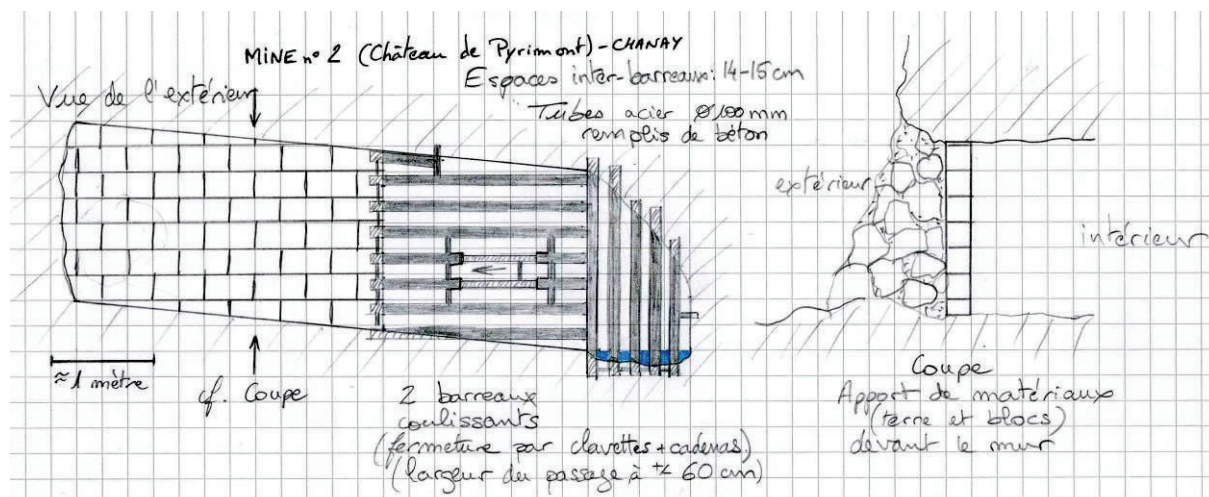 MINE n° 2 (Château de Pyrimont) - CHANAY
Espaces inter-barreaux: 14-15 cm
Vue de l'extérieur
Tubes acier Ø 100 mm
remplis de béton
extérieur
intérieur
≈ 1 mètre
cf. Coupe
2 barreaux
coulissants
(fermeture par clavettes + cadenas)
(largeur du passage à +/- 60 cm)
Coupe
Apport de matériaux
(terre et blocs)
devant le mur